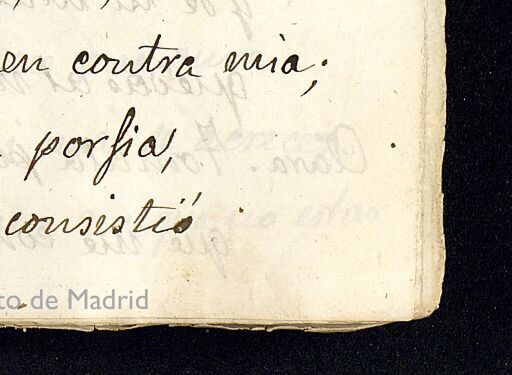 en contra mia;
porfia,
consistió
to de Madrid